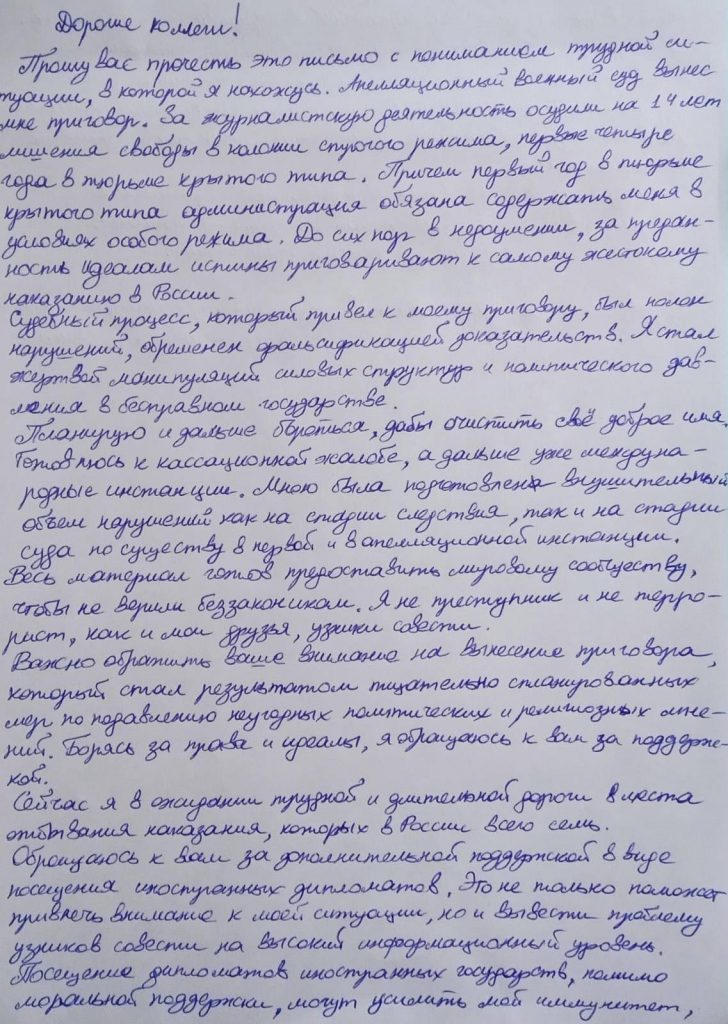 Дорогие коллеги!
Прошу вас прочесть это письмо с пониманием трудной си-
туации, в которой я нахожусь. Апелляционный военный суд вынес
мне приговор. За журналистскую деятельность осудили на 14 лет
лишения свободы в колонии строгого режима, первые четыре
года в тюрьме крытого типа. Причем первый год в тюрьме
крытого типа администрация обязана содержать меня в
условиях особого режима. До сих пор в недоумении, за предан-
ность идеалам истины приговаривают к самому жестокому
наказанию в России.
Судебный процесс, который привел к моему приговору, был полон
нарушений, обременен фальсификацией доказательств. Я стал
жертвой манипуляций силовых структур и политического дав-
ления в бесправном государстве.
Планирую и дальше бороться, дабы очистить своё доброе имя.
Готовлюсь к кассационной жалобе, а дальше уже междуна-
родные инстанции. Мною была подготовлена внушительный
объем нарушений как на стадии следствия, так и на стадии
суда по существу в первой и в апелляционной инстанции.
Весь материал готов предоставить мировому сообществу,
чтобы не верили беззаконикам. Я не преступник и не терро-
рист, как и мои друзья, узники совести.
Важно обратить ваше внимание на вынесение приговора,
который стал результатом тщательно спланированных
мер по подавлению неугодных политических и религиозных мне-
ний. Борясь за права и идеалы, я обращаюсь к вам за поддерж-
кой.
Сейчас я в ожидании трудной и длительной дороги в места
отбывания наказания, которых в России всего семь.
Обращаюсь к вам за дополнительной поддержкой в виде
посещения иностранных дипломатов. Это не только поможет
привлечь внимание к моей ситуации, но и вывести проблему
узников совести на высокий информационный уровень.
Посещение дипломатов иностранных государств, помимо
моральной поддержки, могут усилить мой иммунитет,